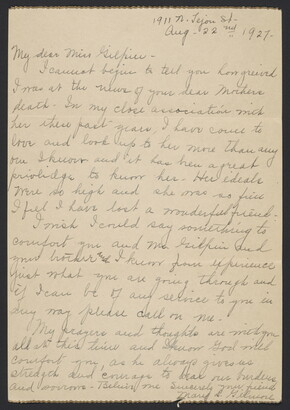 1911 N. Tejon St-
Aug. 22nd 1927.
My dear Miss Gilpin-
I cannot begin to tell you how grieved
I was at the news of your dear Mothers
death. In my close association with
her these past years, I have come to
love and look up to her more than any
one I know and it has been a great
priviledge to know her. Her ideals
were so high and she was so fine
I feel I have lost a wonderful friend.
I wish I could say something to
comfort you and Mr. Gilpin and
your brother I know from experience
just what you are going through and
if I can be of any service to you in
any way please call on me.
My prayers and thoughts are with you
all at this time and I know God will
comfort you, as he always gives us
strength and courage to bear our burdens
and sorrows- Believe me Sincerely your friend
Mary L.